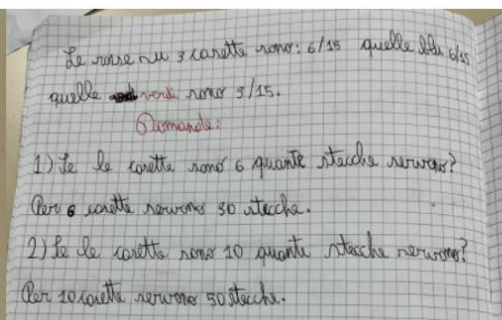 Le rosse su 3 casette sono: 6/15 quelle blu 6/15
quelle verdi sono 3/15.
Domande:
1) Se le casette sono 6 quante stecche servono?
Per 6 casette servono 30 stecche.
2) Se le casette sono 10 quante stecche servono?
Per 10 casette servono 50 stecche.